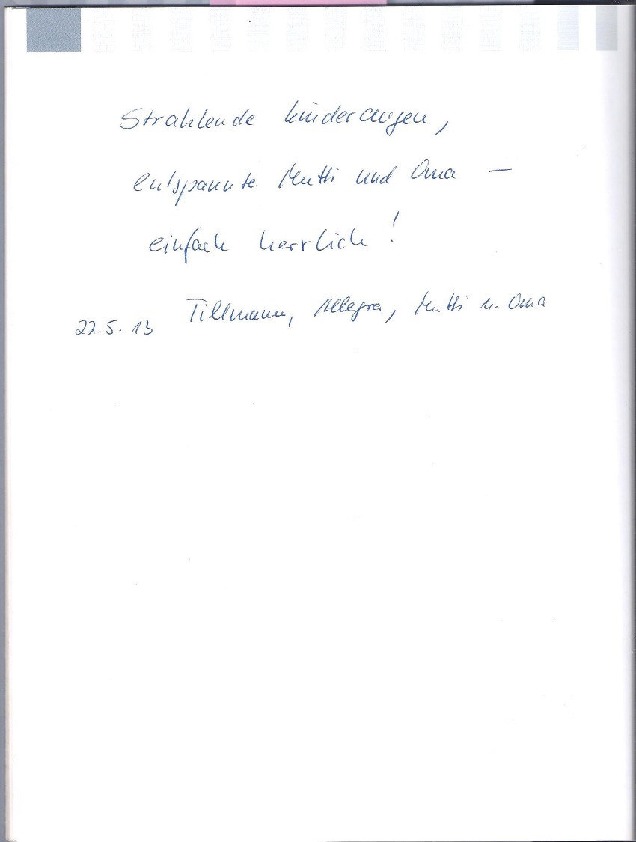 Strahlende Kinderaugen,
entspannte Mutti und Oma —
einfach herrlich!
Tillmann, Allegra, Mutti u. Oma
22.5.13